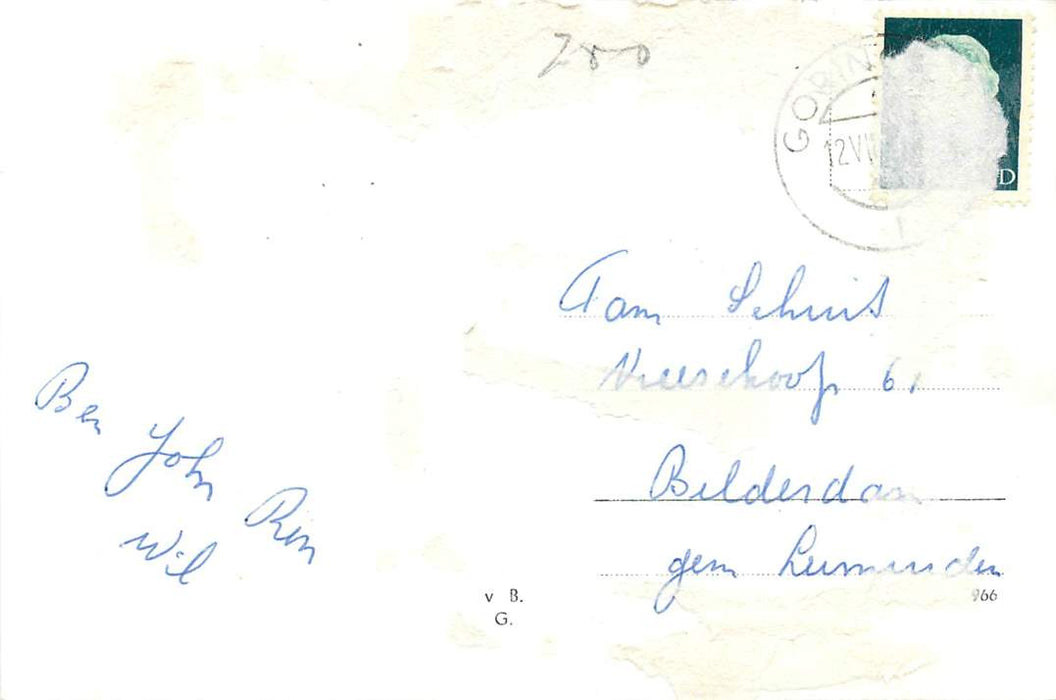 200
GORIN
12 VII
1
D
Fam Schuit
Vriezekoop 61
Bilderdam
gem Leimuiden
Ben
John
Rin
Wil
v B.
G.
966